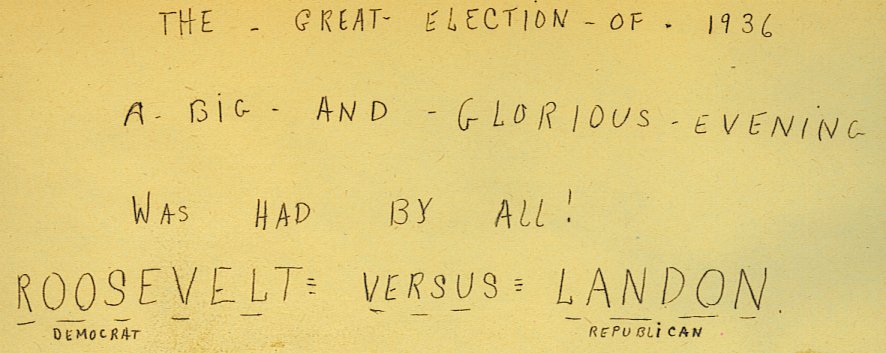 THE - GREAT - ELECTION - OF - 1936
A - BiG - AND - GLORIOUS - EVENiNG
WAS HAD BY ALL!
ROOSEVELT = VERSUS = LANDON.
DEMOCRAT REPUBLiCAN